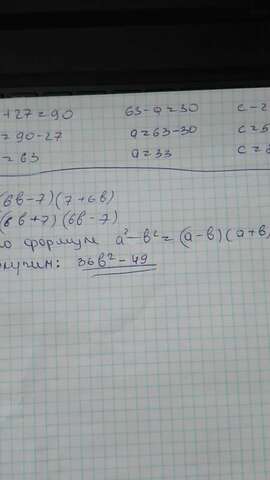 +27=90 63-a=30 c-2
=90-27 a=63-30 c=5
=63 a=33 c=
(6в-7)(7+6в)
(6в+7)(6в-7)
о формул a²-в²=(a-в)(a+в)
лучим: 36в²-49